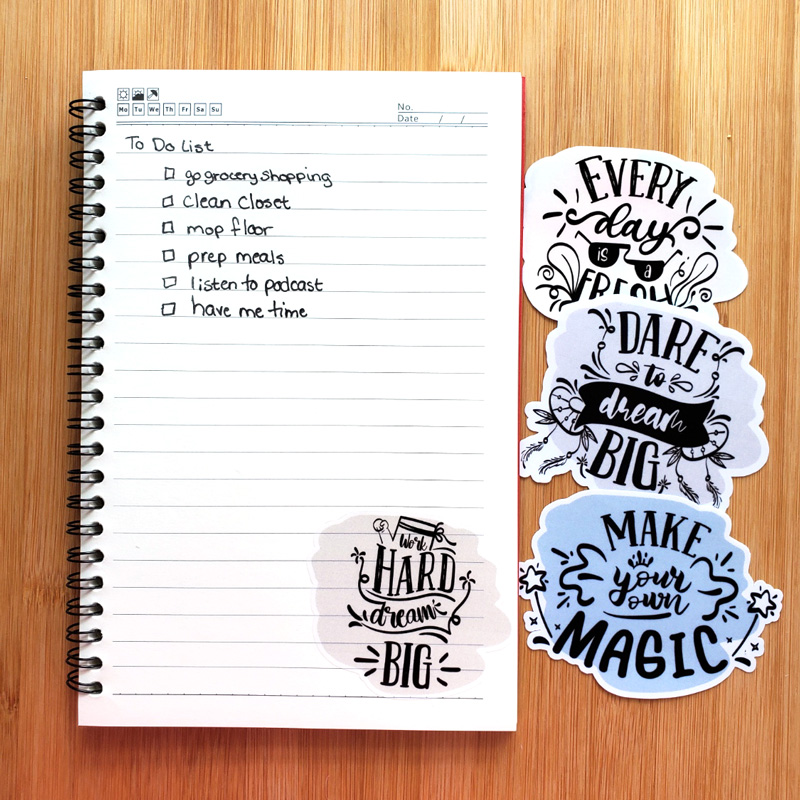 Mo Tu We Th Fr Sa Su
No.
Date / /
To Do List
go grocery shopping
Clean Closet
mop floor
prep meals
listen to podcast
have me time
Work
HARD
dream
BIG
EVERY
day
is a
FRESH
DARE
to
dream
BIG
MAKE
your
own
MAGIC